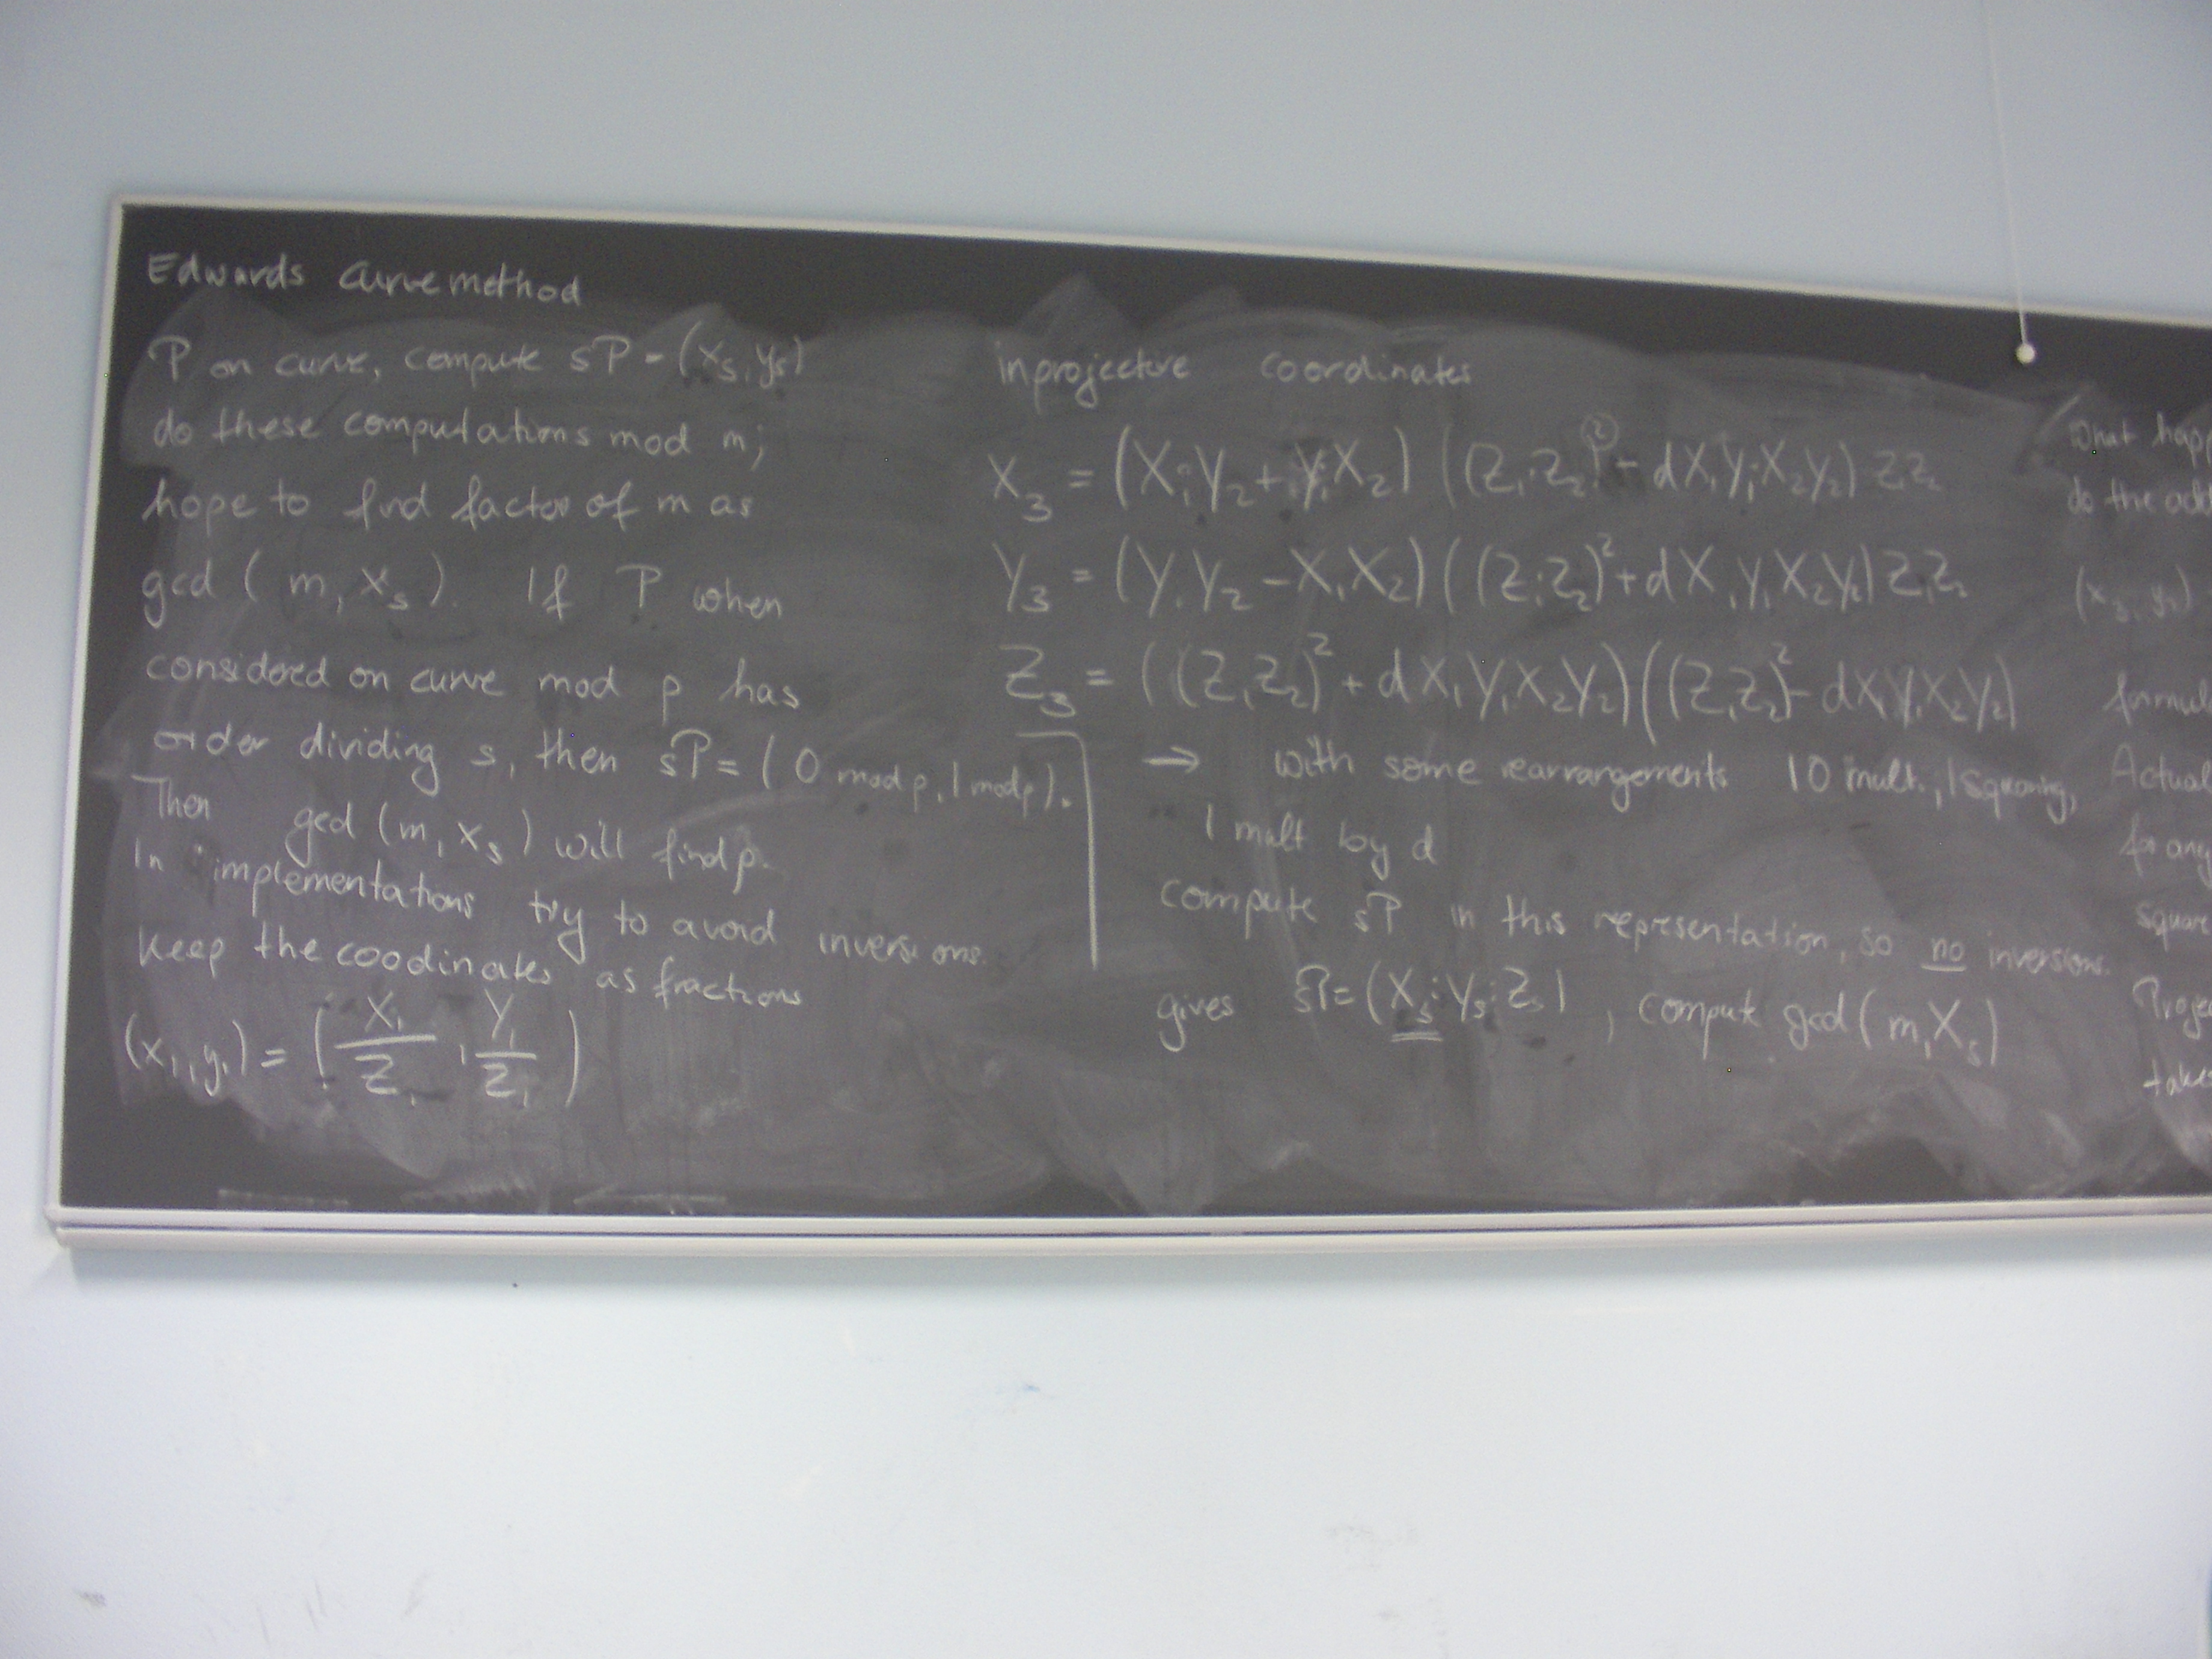 Edwards curve method
P on curve, compute sP = (x_s, y_s)
do these computations mod m;
hope to find factor of m as
gcd ( m, x_s ). If P when
considered on curve mod p has
order dividing s, then sP = ( 0 mod p, 1 mod p ).
Then gcd (m, x_s) will find p.
In implementations try to avoid inversions.
Keep the coodinates as fractions
(x_1, y_1) = ( X_1/Z_1 , Y_1/Z_1 )
in projective coordinates
X_3 = (X_1 Y_2 + Y_1 X_2) ((Z_1 Z_2)^2 - d X_1 Y_1 X_2 Y_2) Z_1 Z_2
Y_3 = (Y_1 Y_2 - X_1 X_2) ((Z_1 Z_2)^2 + d X_1 Y_1 X_2 Y_2) Z_1 Z_2
Z_3 = ((Z_1 Z_2)^2 + d X_1 Y_1 X_2 Y_2) ((Z_1 Z_2)^2 - d X_1 Y_1 X_2 Y_2)
→ with some rearrangements 10 mult., 1 squaring,
1 mult by d
compute sP in this representation, so no inversions.
gives sP = (X_s : Y_s : Z_s) , compute gcd (m, X_s)
What
do the
for any